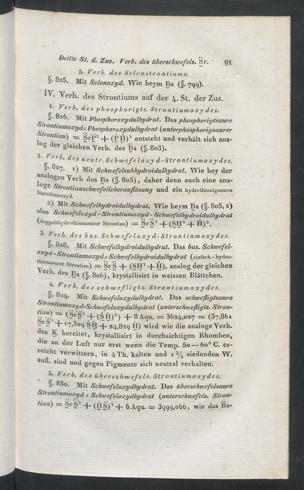 Dritte St. d. Zus. Verb. des überschwefels. S̈r. 91
5. Verb. des Selenstrontiums.
§. 825. Mit Selenoxyd. Wie beym Ba (§. 799).
IV. Verb. des Strontiums auf der 4. St. der Zus.
1. Verb. des phosphorigts. Strontiumoxydes.
§. 826. Mit Phosphoroxydulhydrat. Das phosphorigtsaure
Strontiumoxyds Phosphoroxydulhydrat (unterphosphorigsaurer
Strontian) entsteht und verhält sich ana-
log der gleichen Verb. des Ba (§. 803).
2. Verb. des neutr. Schwefeloxyd-Strontiumoxydes.
§. 827. 1) Mit Schwefelsubhydroidulhydrat. Wie bey der
analogen Verb. des Ba (§. 805), daher denn auch eine ana-
loge Strontianschwefelleberauflösung und ein hydrothionigsaures
Strontiumoxyd.
2) Mit Schwefelhydroidulhydrat. Wie beym Ba (§. 805, 2)
also Schwefeloxyd-Strontiumoxyd-Schwefelhydroidulhydrat
(doppelthydrothionsaurer Strontian)
3. Verb. des bas. Schwefeloxyd-Strontiumoxydes.
§. 828. Mit Schwefelhydroidulhydrat. Das bas. Schwefel-
oxyd-Strontiumoxyds Schwefelhydroidulhydrat (einfach-hydro-
thionsaurer Strontian) analog der gleichen
Verb. des Ba (§. 806), krystallisirt in weissen Blättchen.
4. Verb. des schwefligts. Strontiumoxydes.
§. 829. Mit Schwefeloxydulhydrat. Das schwefligtsaure
Strontiumoxyd-Schwefeloxydulhydrat (unterschwefligts. Stron-
tian) + 8 Aqu. = 3624,027 = (57,861
+ 17,309 + 24,829 H) wird wie die analoge Verb.
des K bereitet, krystallisirt in durchsichtigen Rhomben,
die an der Luft nur erst wenn die Temp. 50—60° C. er-
reicht verwittern, in 4 Th. kalten und 1¾ siedenden W.
aufl. sind und gegen Pigmente sich neutral verhalten.
5. Verb. des überschwefels. Strontiumoxydes.
§. 830. Mit Schwefeloxydhydrat. Das überschwefelsaure
Strontiumoxyd-Schwefeloxydhydrat (unterschwefels. Stron-
tian) + 6 Aqu. = 3999,066, wie das Ba-